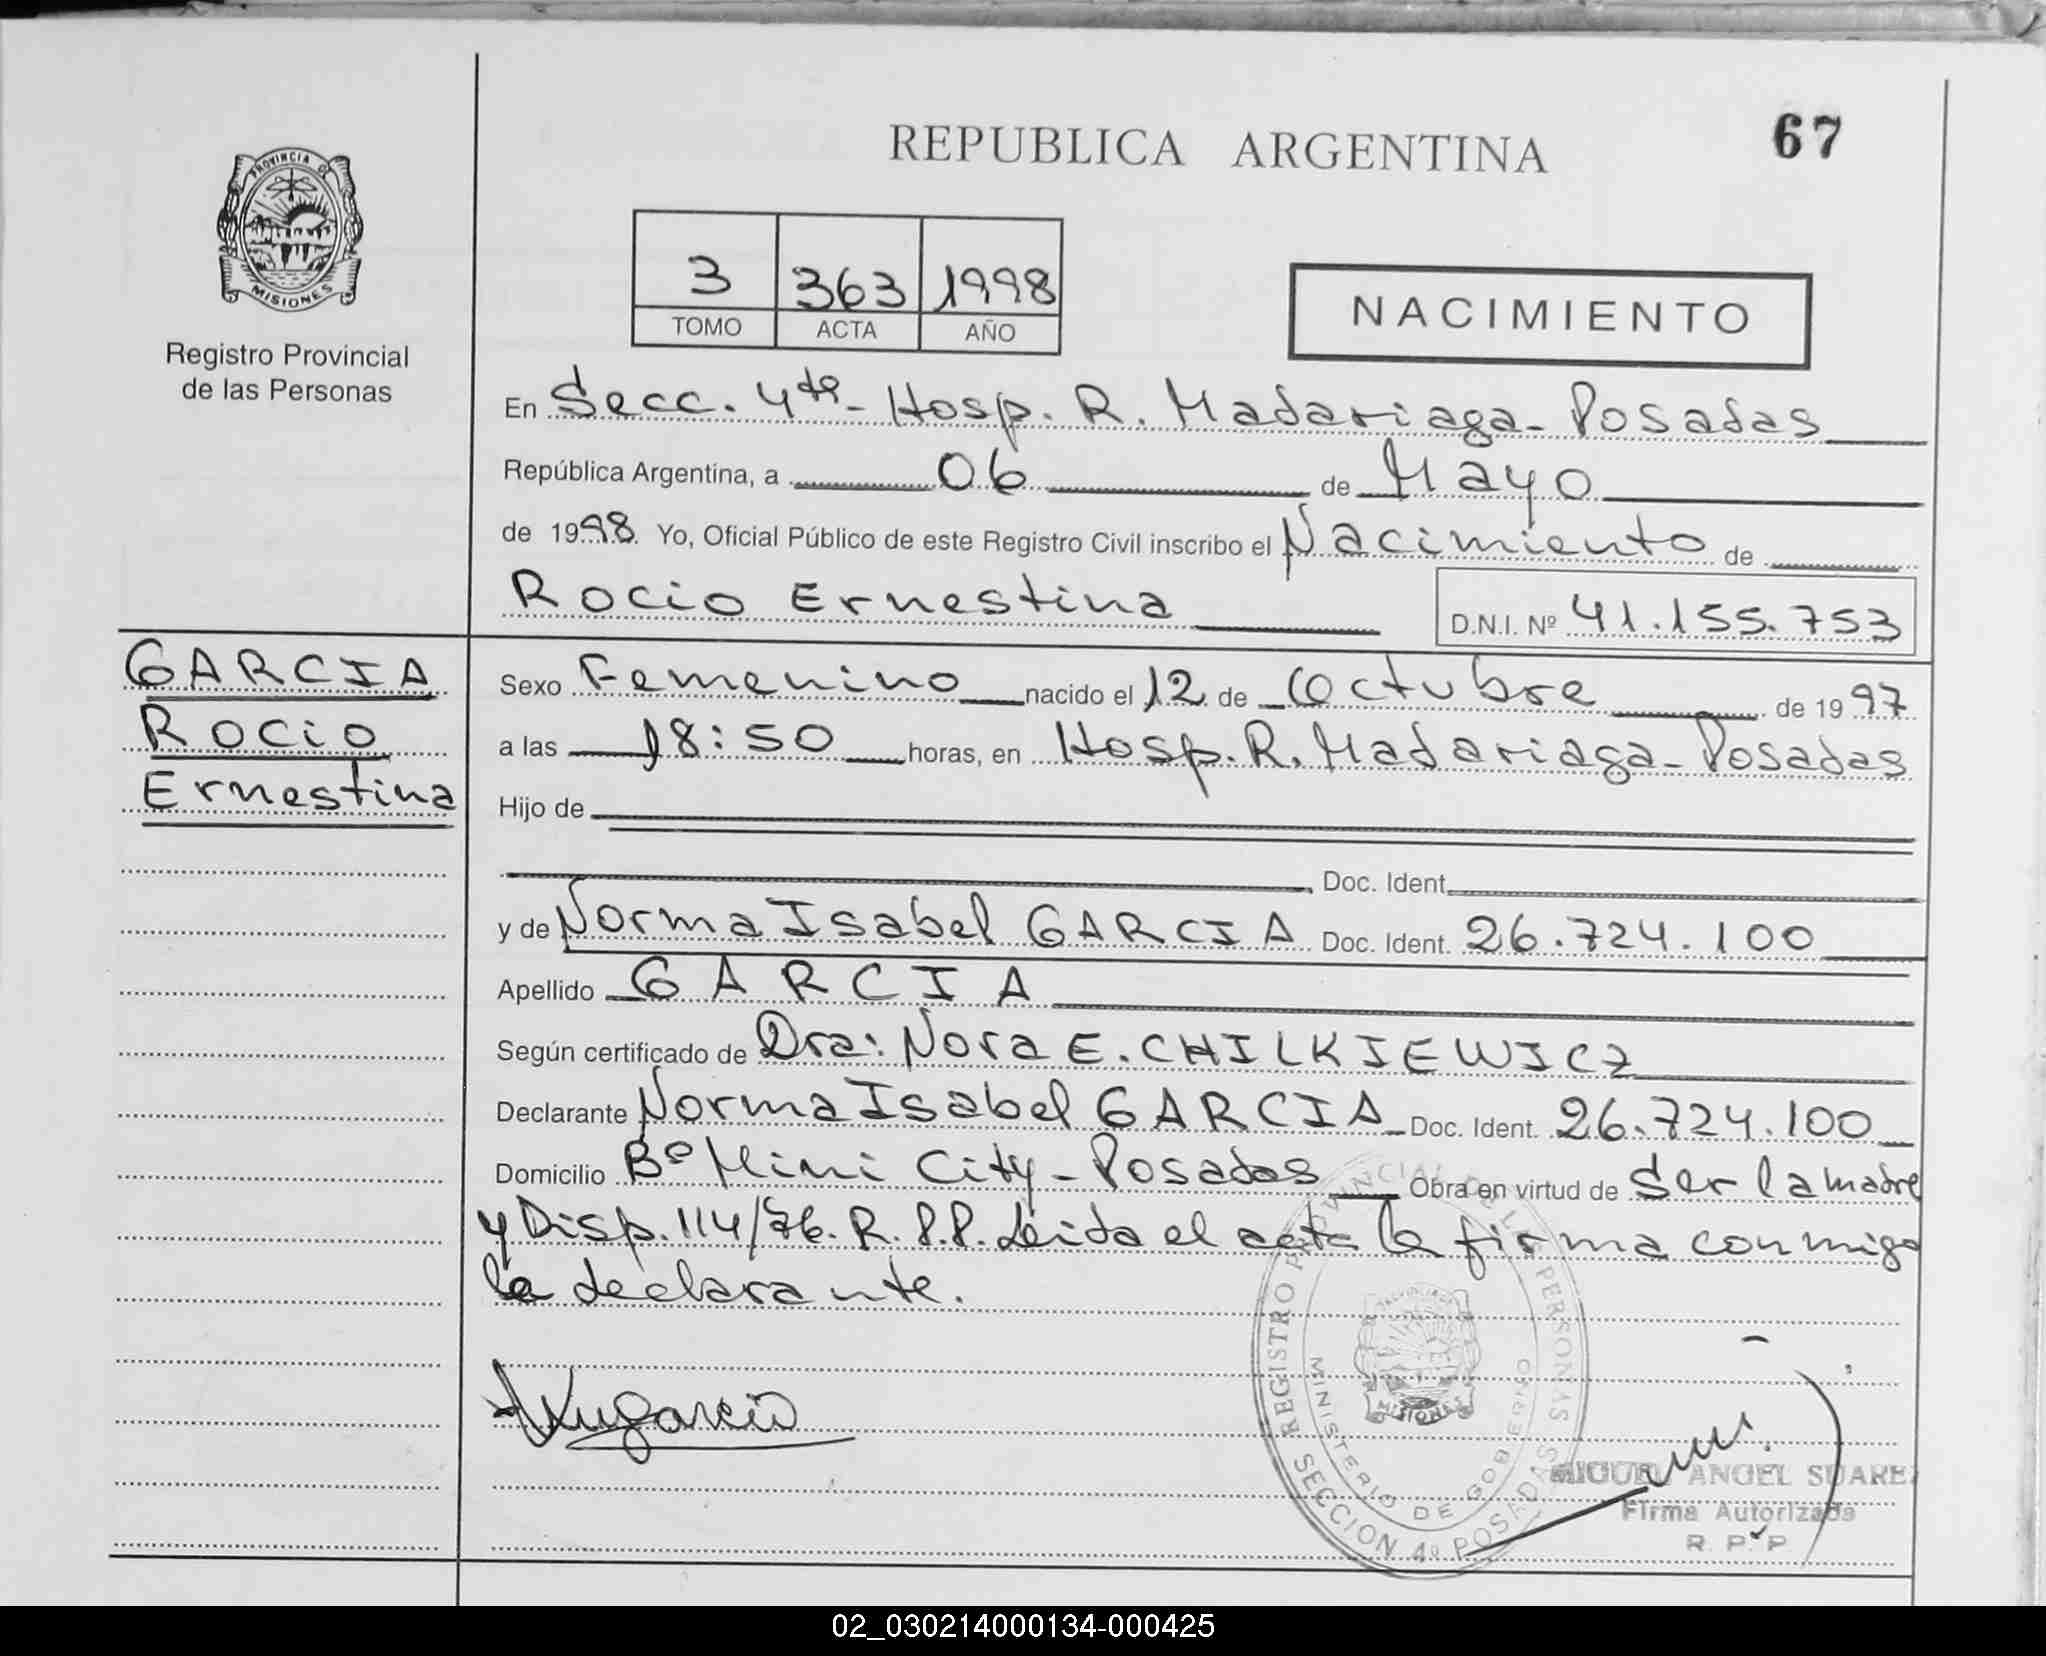 REPUBLICA ARGENTINA
67
PROVINCIA DE
MISIONES
Registro Provincial
de las Personas
3 363 1998
TOMO ACTA AÑO
NACIMIENTO
En Secc. 4ta - Hosp. R. Madariaga - Posadas
República Argentina, a 06 de Mayo
de 1998 Yo, Oficial Público de este Registro Civil inscribo el Nacimiento de
Rocio Ernestina D.N.I. Nº 41.155.753
GARCIA
Rocio
Ernestina
Sexo Femenino nacido el 12 de Octubre de 1997
a las 18:50 horas, en Hosp. R. Madariaga - Posadas
Hijo de
Doc. Ident.
y de Norma Isabel GARCIA Doc. Ident. 26.724.100
Apellido GARCIA
Según certificado de Dra: Nora E. CHILKIEWICZ
Declarante Norma Isabel GARCIA Doc. Ident. 26.724.100
Domicilio Bº Mini City - Posadas Obra en virtud de Ser la madre
y Disp. 114/96. R.P.P. Leida el acta la firma conmigo
la declarante.
REGISTRO PROVINCIAL DE LAS PERSONAS
MINISTERIO DE GOBIERNO
MISIONES
SECCION 4º POSADAS
MIGUEL ANGEL SUAREZ
Firma Autorizada
R. P. P
02_030214000134-000425